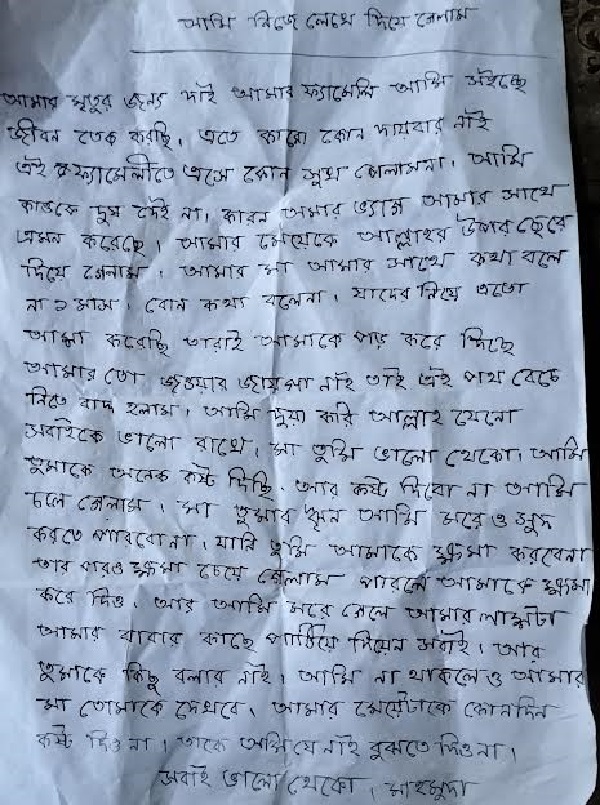 আমি নিজে লেখে দিয়ে গেলাম
আমার মৃত্যুর জন্য দাই আমার ফ্যামেলি আমি সইচ্ছে
জীবন তেক করছি। এতে কারো কোন দায়বার নাই
এই ফ্যামেলীতে এসে কোন সুখ পেলামনা। আমি
কাউকে দুষ দেই না। কারন আমার ভ্যাগ্য আমার সাথে
এমন করেছে। আমার মেয়েকে আল্লাহর উপর ছেরে
দিয়ে গেলাম। আমার মা আমার সাথে কথা বলে
না ২ মাস। বোন কথা বলেনা। যাদের নিয়ে এতো
আশা করেছি তারাই আমাকে পড় করে দিছে
আমার তো জাওয়ার জায়গা নাই তাই এই পথ বেচে
নিতে বাদ্য হলাম। আমি দুয়া করি আল্লাহ যেনো
সবাইকে ভালো রাখে। মা তুমি ভালো থেকো। আমি
তুমাকে অনেক কষ্ট দিছি। আর কষ্ট দিবো না আমি
চলে গেলাম। মা তুমার ঋন আমি মরে ও সুদ
করতে পারবোনা। যানি তুমি আমাকে ক্ষমা করবেনা
তার পরও ক্ষমা চেয়ে গেলাম পারলে আমাকে ক্ষমা
করে দিও। আর আমি মরে গেলে আমার লাশটা
আমার বাবার কাছে পাঠিয়ে দিয়েন সবাই। আর
তুমাকে কিছু বলার নাই। আমি না থাকলেও আমার
মা তোমাকে দেখবে। আমার মেয়েটাকে কোনদিন
কষ্ট দিও না। তাকে আমি যে নাই বুঝতে দিওনা।
সবাই ভালো থেকো। মাহমুদা